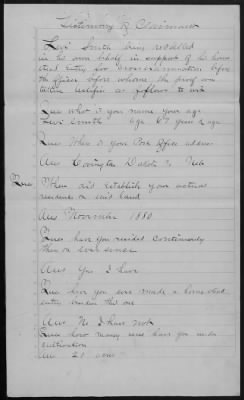 Testimony of Claimant
Levi Smith being recalled
in his own behalf in support of his home
stead entry for examination before
the officer before whom the proof was
taken testifies as follows to wit
Ques what is your name your age
Levi Smith age 67 years of age
Ques Where is your Post office address
Ans Covington Dakota Co Neb
Ques When did establish your actual
residence on said land
Ans November 1880
Ques have you resided continuously
thereon ever since
Ans Yes I have
Ques have you ever made a homestead
entry but this one
Ans No I have not
Ques how many acres have you under
cultivation
Ans 21 acres